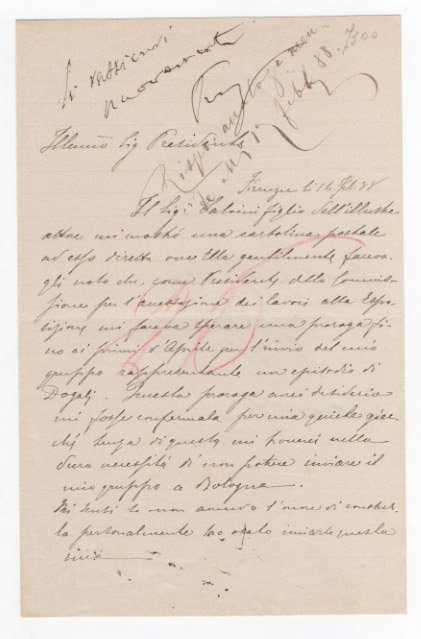 Si rassicuri
nuovamente
Risposto analogamen-
te
Febb. 88.
Illmo Sig Presidente
Firenze li 14 Feb. 88
Il Sig: Salvini figlio dell'illustre
attore mi mostrò una cartolina postale
ad esso diretta ove Ella gentilmente faceva-
gli noto che, come Presidente della Commis-
sione per l'accettazione dei lavori alla Espo-
sizione mi faceva sperare una proroga fi-
no ai primi d'Aprile per l'invio del mio
gruppo rappresentante un episodio di
Dogali. Questa proroga avrei desiderio
mi fosse confermata per mia quiete giac-
chè senza di questa mi troverei nella
dura necessità di non potere inviare il
mio gruppo a Bologna.
Mi scusi se non avendo l'onore di conoscer-
la personalmente ho osato inviarle questa
mia